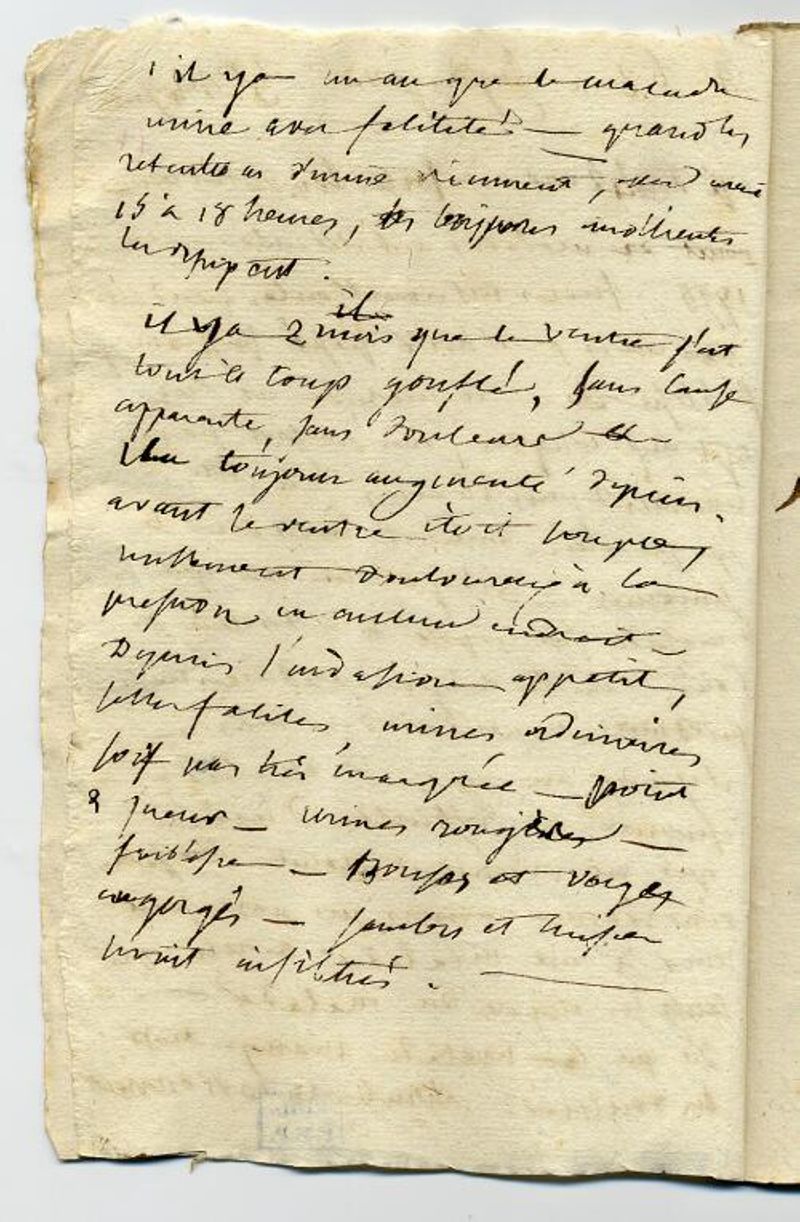 il y a un an que le malade
urine avec falilité — quand les
retentions d'urine viennent, au
15 à 18 heures, les emollients
les dissipent.
il y a 2 mois que le ventre s'est
tout à coup gonflé, sans cause
apparente, sans douleurs
il a toujours augmenté depuis.
avant le ventre étoit souple,
nullement douloureux à la
pression en aucun endroit —
Depuis l'invasion appétit,
selles faliles, urines ordinaires
soif pas très — point
sueur — urines rougeâtres —
foiblesse — bourses et verge
engorgés — jambes et
infiltrés. —